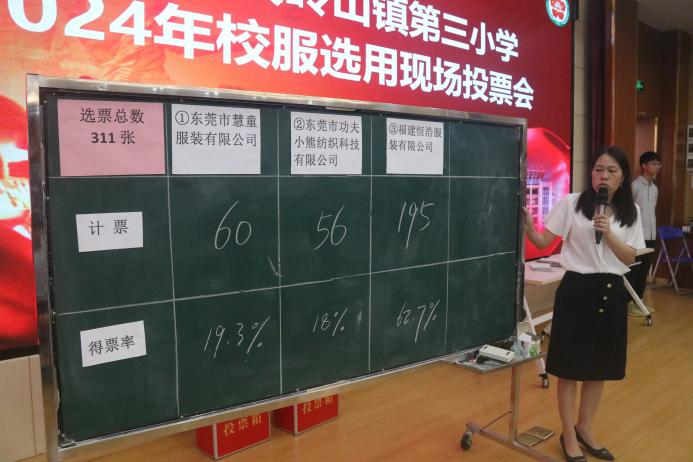 岭山镇第三小学
2024年校服选用现场投票会
选票总数
311 张
①东莞市慧童
服装有限公司
②东莞市功夫
小熊纺织科技
有限公司
③福建恒浩服
装有限公司
计票
60
56
195
得票率
19.3%
18%
62.7%
投票箱
投票箱